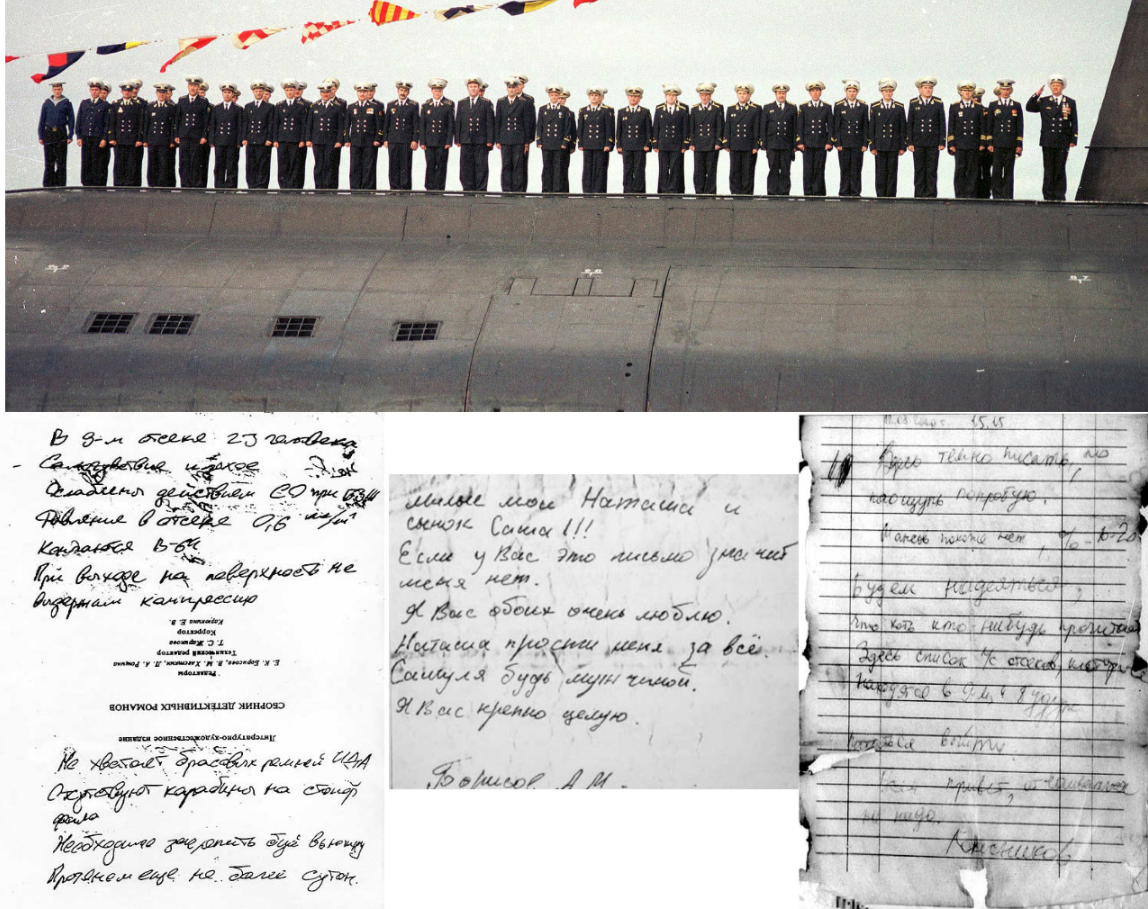 В 9-м отсеке 23 человека
Самочувствие плохое
Ослаблены действием СО при БЗЖ
Давление в отсеке 0,6 кг/м²
Кончаются В-64
При выходе на поверхность не
выдержим компрессию
Литературно-художественное издание
СБОРНИК ДЕТЕКТИВНЫХ РОМАНОВ
Редакторы
Е. К. Борисова, В. М. Л. А. Рощина
Технический редактор
Т. С. Жарикова
Корректор
Е. В.
Не хватает брасовых ремней ИДА
Отсутствуют карабины на стопор
фала
Необходимо закрепить буй вьюшку
Протянем еще не более суток.
милые мои Наташа и
сынок Саша!!!
Если у Вас это письмо значит
меня нет.
Я Вас обоих очень люблю.
Наташа прости меня за всё.
Сашуля будь мужчиной.
Я Вас крепко целую.
Борисов А.М.
15.15
Здесь темно писать, но
наощупь попробую.
Шансов похоже нет, % - 10-20
Будем надеяться,
что хоть кто-нибудь прочитает
Здесь список л/с отсеков, которые
находятся в 9-м и будут
пытаться выйти
Всем привет, отчаиваться
не надо.
Колесников